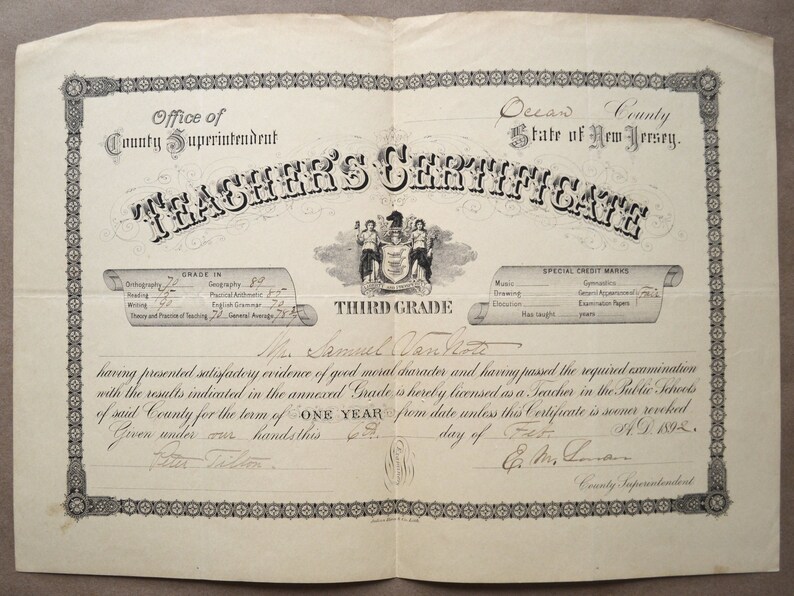 Office of
County Superintendent
Ocean County
State of New Jersey.
TEACHER'S CERTIFICATE
GRADE IN
Orthography 70 Geography 89
Reading 75 Practical Arithmetic 85
Writing 90 English Grammar 70
Theory and Practice of Teaching 70 General Average 78
SPECIAL CREDIT MARKS
Music Gymnastics
Drawing General Appearance of
Elocution Examination Papers fair
Has taught years
THIRD GRADE
Mr. Samuel Van Note
having presented satisfactory evidence of good moral character and having passed the required examination
with the results indicated in the annexed Grade, is hereby licensed as a Teacher in the Public Schools
of said County for the term of ONE YEAR from date unless this Certificate is sooner revoked
Given under our hands this 6th day of Feb. A.D. 1892.
Peter Tilton.
Examiners
E. M. Lonan
County Superintendent